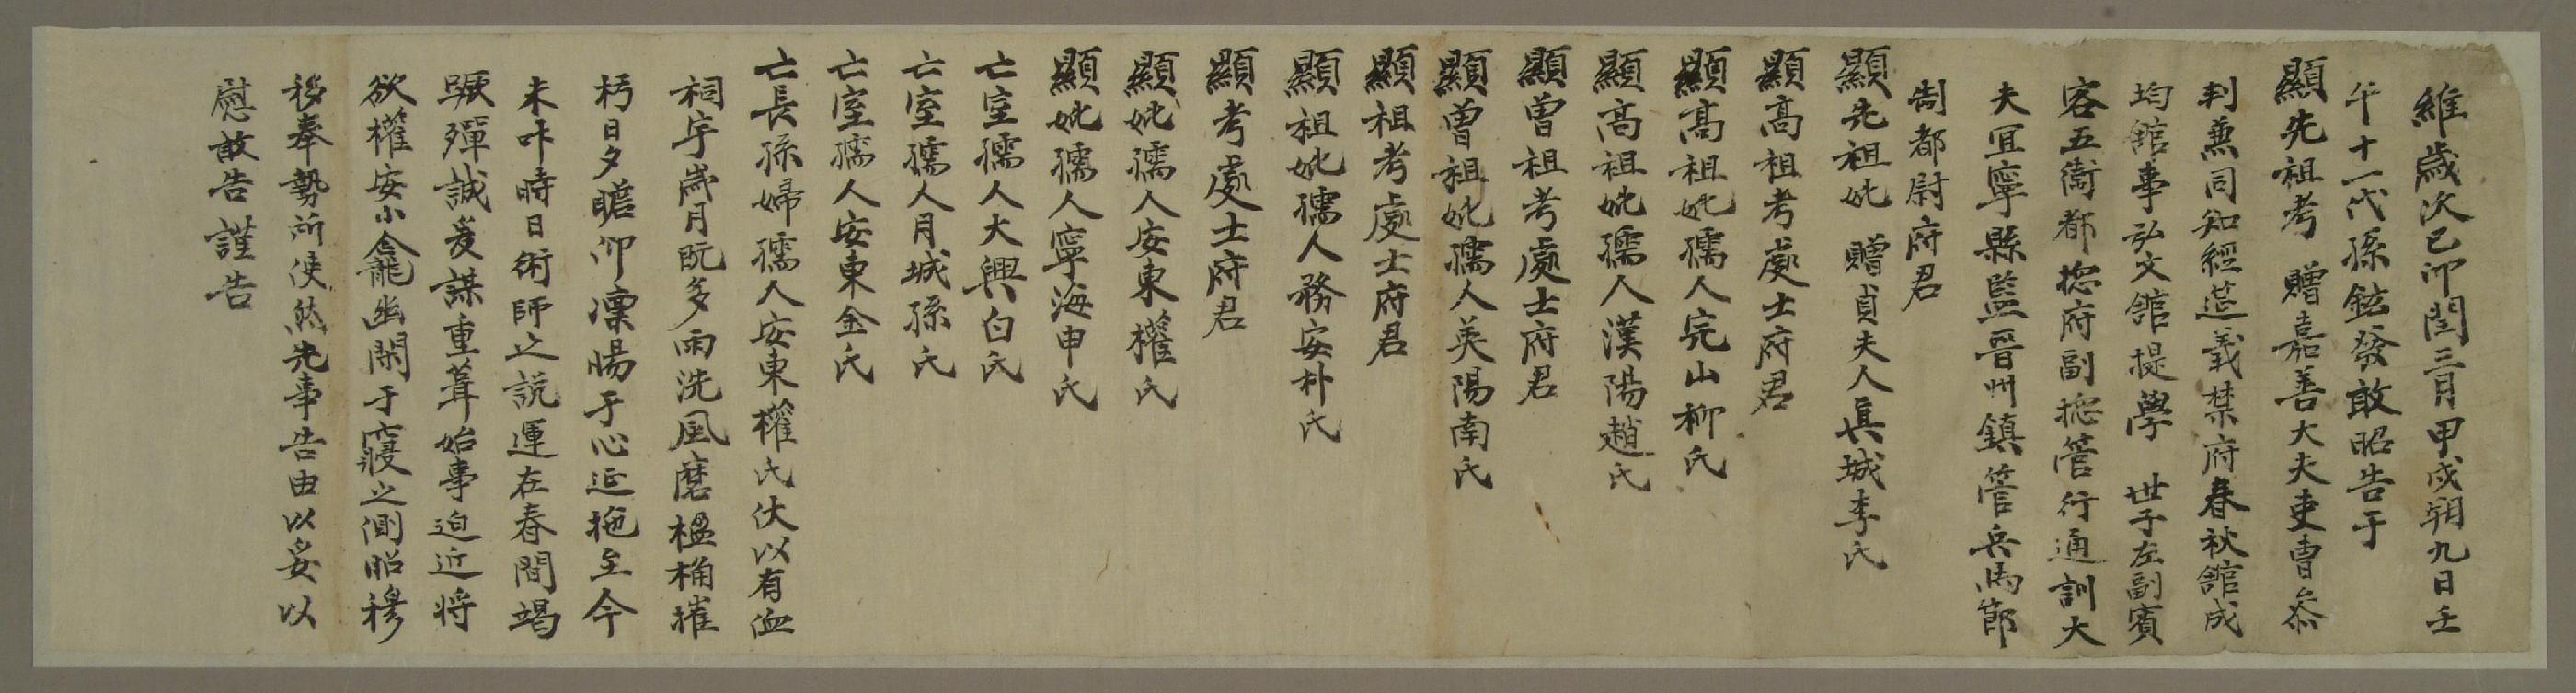 維歲次己卯閏三月甲戌朔九日壬
午十一代孫鉉發敢昭告于
顯先祖考 贈嘉善大夫吏曹叅
判兼同知經筵義禁府春秋館成
均館事弘文館提學 世子左副賓
客五衛都摠府副摠管行通訓大
夫宜寧縣監晋州鎮管兵馬節
制都尉府君
顯先祖妣 贈貞夫人眞城李氏
顯高祖考處士府君
顯高祖妣孺人完山柳氏
顯高祖妣孺人漢陽趙氏
顯曾祖考處士府君
顯曾祖妣孺人英陽南氏
顯祖考處士府君
顯祖妣孺人務安朴氏
顯考處士府君
顯妣孺人安東權氏
顯妣孺人寧海申氏
亡室孺人大興白氏
亡室孺人月城孫氏
亡室孺人安東金氏
亡長孫婦孺人安東權氏伏以有血
祠宇歲月旣多雨洗風磨楹桷摧
朽日夕瞻仰澟惕于心延拖至今
未卟時日術師之說運在春間竭
蹶殫誠爰謀重葺始事迫近將
欲權安小龕幽閑于寢之側昭穆
移奉勢所使然先事告由以妥以
慰敢告謹告